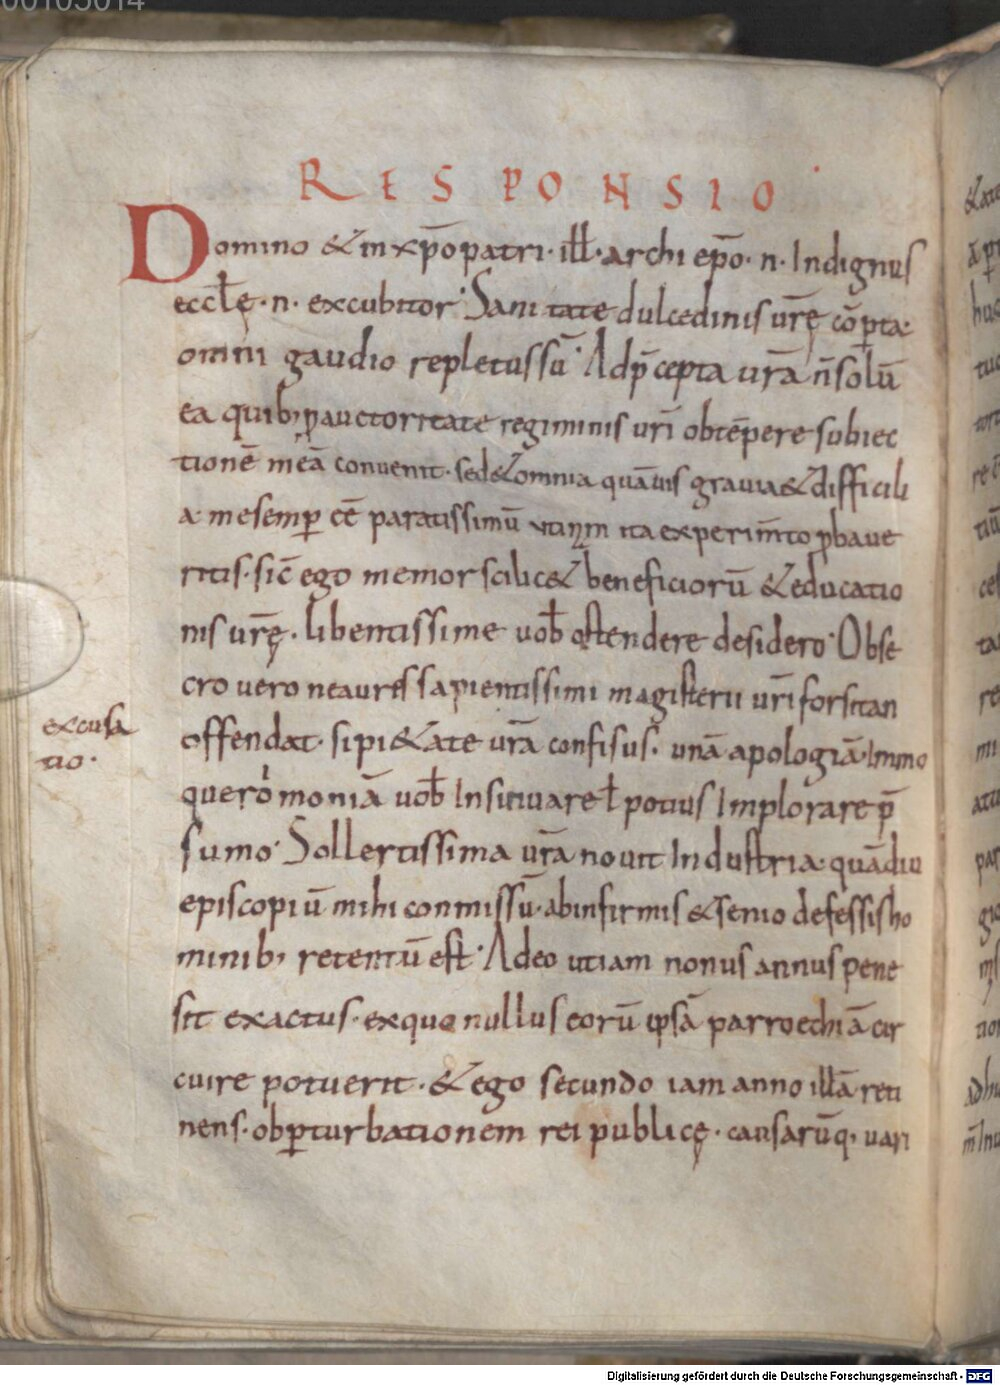 00105014
RESPONSIO
Domino & in xp̄o patri · ill̄ · archi ep̄o · n · Indignus
eccl̄ę · n · excubitor · Sanitate dulcedinis ur̄ę cōperta·
omni gaudio repletus sū · Ad p̄cepta ur̄a n̄ solū
ea quib; ꝓ auctoritate regiminis ur̄i obtēperere subiec
tionē meā conuenit · sed & omnia quāuis grauia & difficili
a· me semꝑ eē paratissimū utinā ita experim̄to ꝓbaue
ritis · sic̄ ego memor scilic& beneficiorū & educatio
nis ur̄ę · libentissime uob̄ ostendere desidero · Obse
cro uero ne aures sapientissimi magisterii ur̄i forsitan
offendat · si pi&ate ur̄a confisus · unā apologiā · Immo
querimoniā uob̄ Insinuare ł potius Implorare p̄
sumo · Sollertissima ur̄a nouit Industria · quādiu
episcopiū mihi conmissū · ab infirmis & senio defessis ho
minib; retentū est · Adeo ut iam nonus annus pene
sit exactus · ex quo nullus eorū ipsā parroechiā cir
cuire potuerit · & ego secundo iam anno illā reti
nens · ob ꝑturbationem rei publicę · causarūq; uari
excusa
tio ·
Digitalisierung gefördert durch die Deutsche Forschungsgemeinschaft - DFG